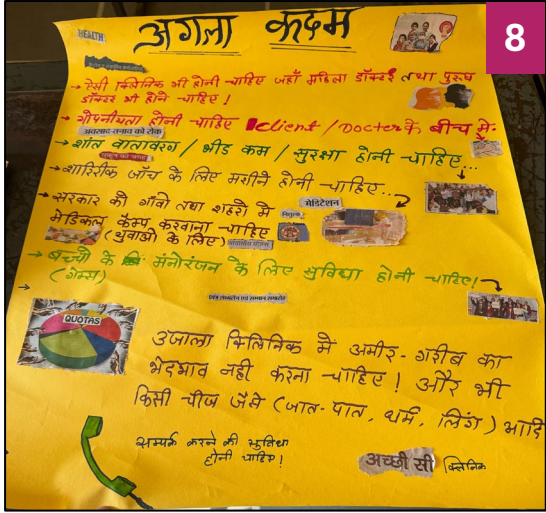 8
HEALTH
अगला कदम
→ ऐसी क्लिनिक भी होनी चाहिए जहाँ महिला डॉक्टर तथा पुरुष
डॉक्टर भी होने चाहिए!
→ गोपनीयता होनी चाहिए Client / Doctor के बीच में.
अवसाद-तनाव को रोक
→ शांत वातावरण / भीड़ कम / सुरक्षा होनी चाहिए...
→ शारिरीक जाँच के लिए मशीने होनी चाहिए...
→ सरकार को गाँवो तथा शहरो मे मेडिटेशन
मेडिकल कैम्प करवाना चाहिए निशुल्क
(युवाओं के लिए)
→ बच्चो के मंनोरंजन के लिए सुविधा होनी चाहिए!
(गेम्स)
→
QUOTAS
उजाला क्लिनिक में अमीर-गरीब का
भेदभाव नही करना चाहिए! और भी
किसी चीज जैसे (जात-पात, धर्म, लिंग) आदि
सम्पर्क करने की सुविधा
होनी चाहिए!
अच्छी सी क्लिनिक